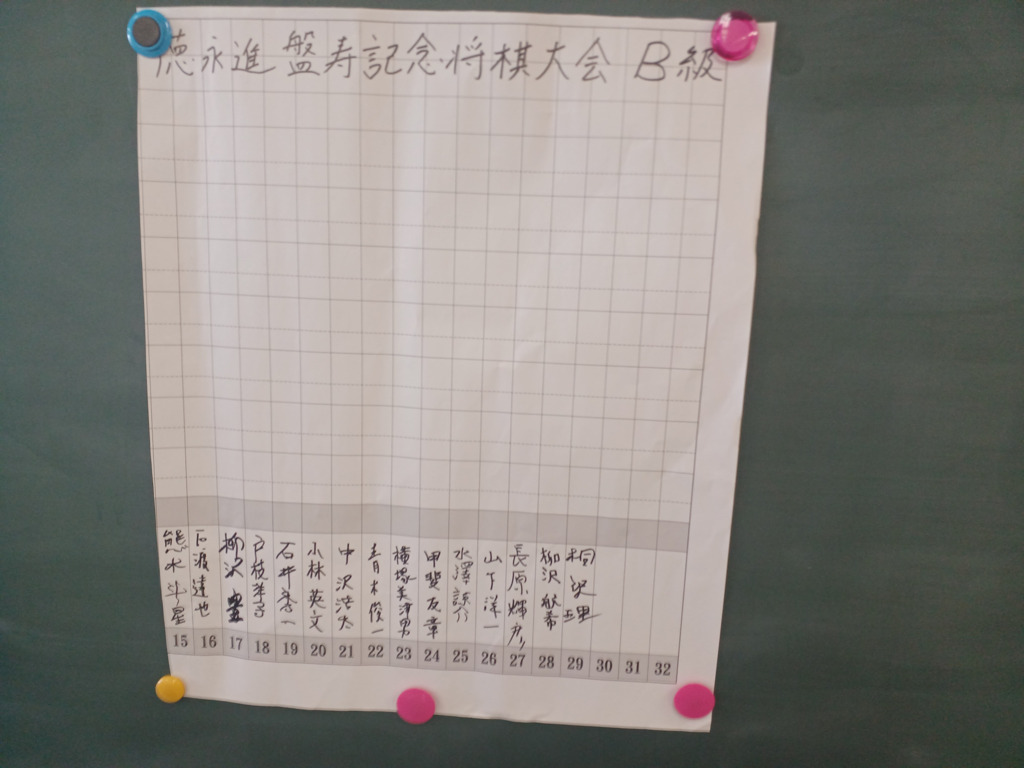 徳永進 盤寿記念将棋大会 B級
熊水斗星
石渡達也
柳沢
戸枝
石井秀一
小林英文
中沢浩太
青木俊一
横塚美津男
甲斐友章
水澤
山下洋一
長原輝彦
柳沢敏希
桐
15 16 17 18 19 20 21 22 23 24 25 26 27 28 29 30 31 32